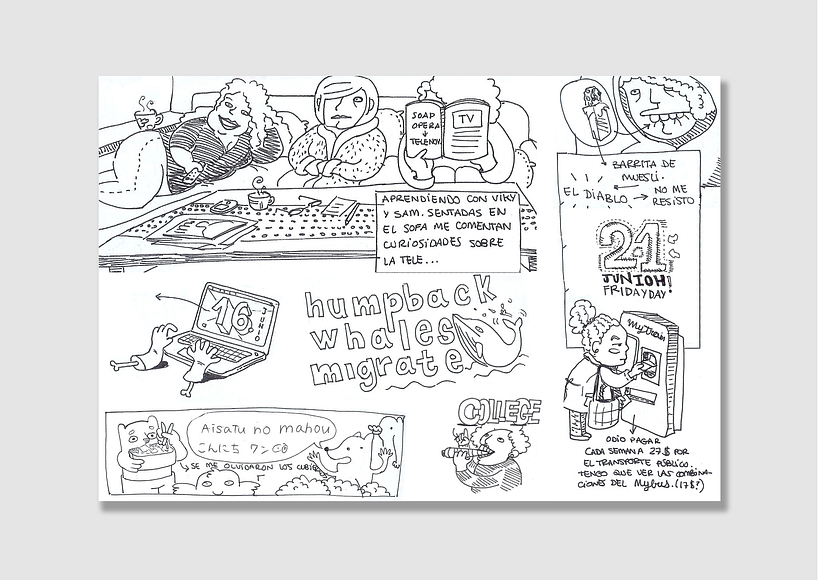 SOAP
OPERA
TELENOV.
TV
APRENDIENDO CON VIKY
Y SAM. SENTADAS EN
EL SOFA ME COMENTAN
CURIOSIDADES SOBRE
LA TELE...
BARRITA DE
MUESLI.
EL DIABLO.
NO ME
RESISTO
21
JUNIOH!
FRIDAYDAY!
16
JUNIO
humpback
whales
migrate.
MyTrain
ODIO PAGAR
CADA SEMANA 27$ POR
EL TRANSPORTE PÚBLICO.
TENGO QUE VER LAS COMBINA-
CIONES DEL Mybus. (17$?)
Aisatu no mahou
こんにち ワン
SE ME OLVIDARON LOS
COLLEGE